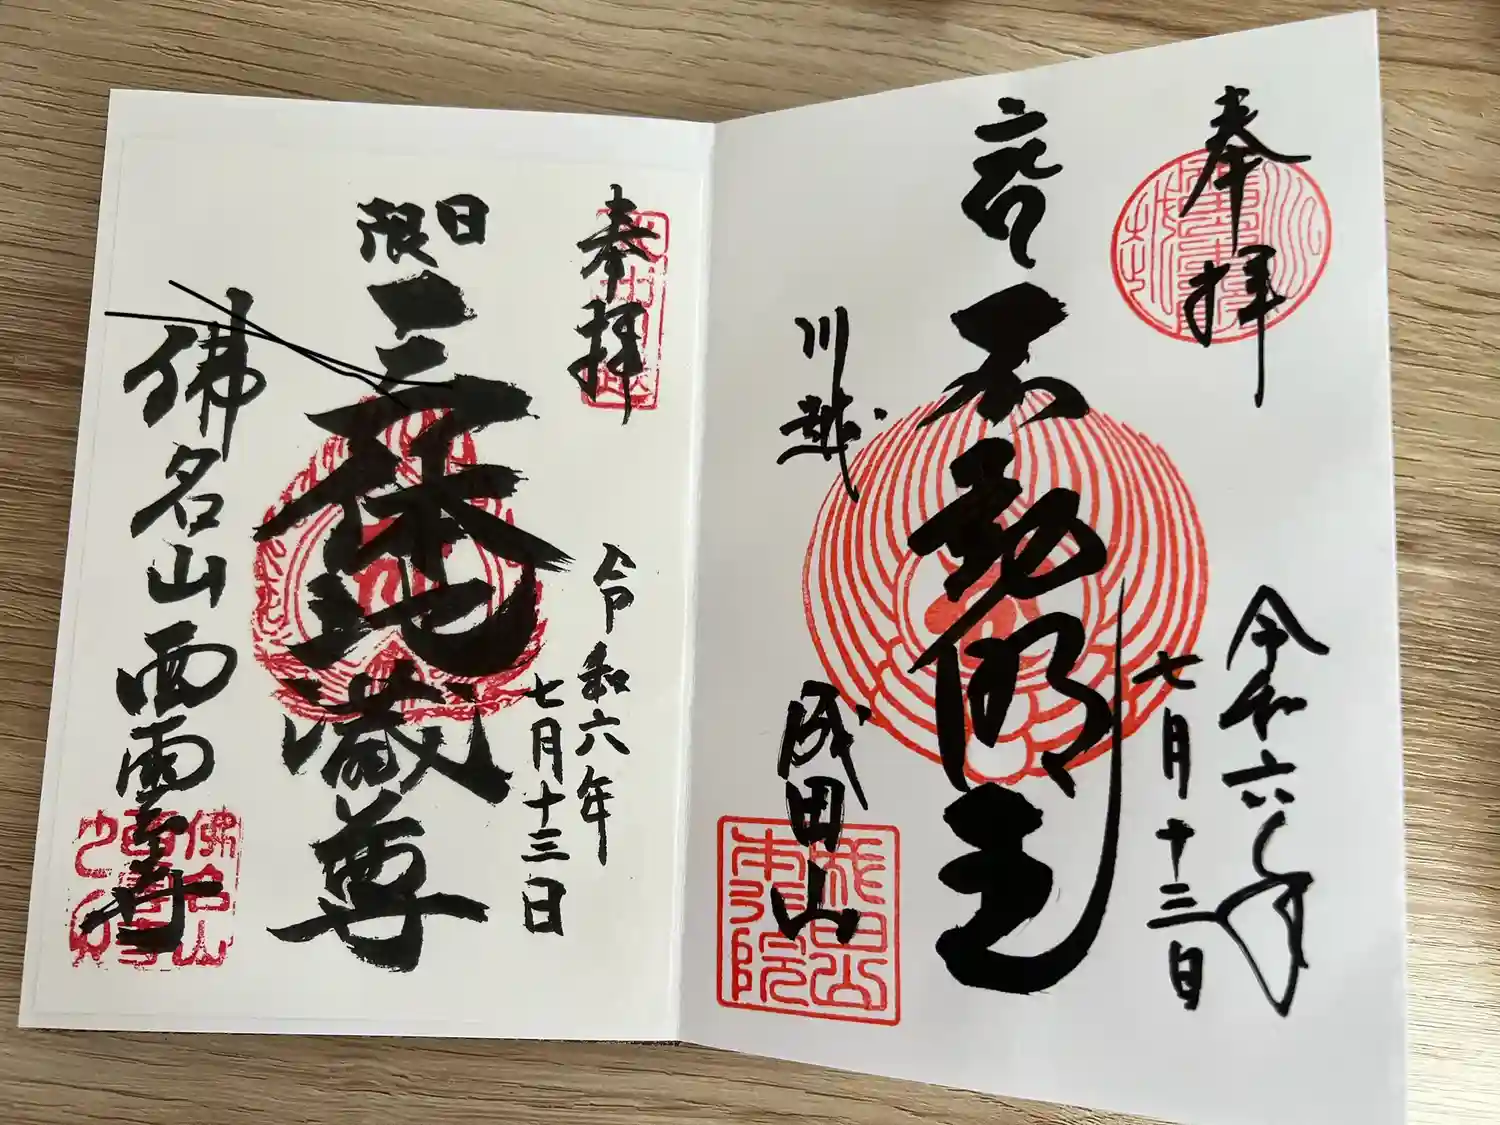 奉拝
令和六年
七月十三日
不動明王
川越
成田山
成田山
本行院
奉拝
令和六年
七月十三日
日限
三体地蔵尊
佛名山西雲寺